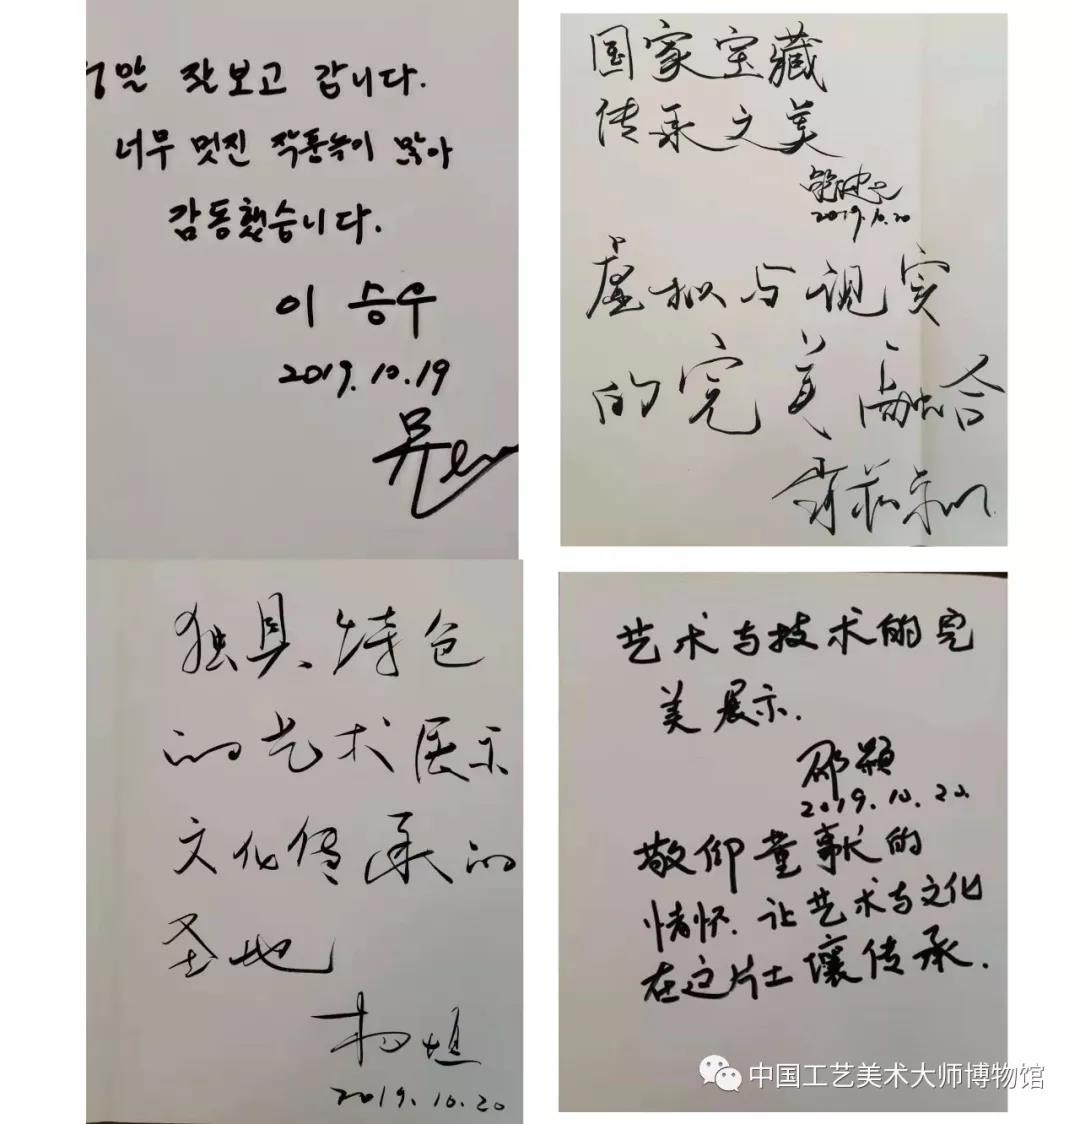 정말 잘보고 갑니다.
너무 멋진 작품속이 많아
감동했습니다.
이 승우
2019.10.19
国家宝藏
传承之美
2019.10.20
虚拟与现实
的完美融合
独具特色
的艺术展示
文化传承的
圣地
2019.10.20
艺术与技术的完
美展示.
邵颖
2019.10.20
敬仰董事长的
情怀.让艺术与文化
在这片土壤传承.
中国工艺美术大师博物馆